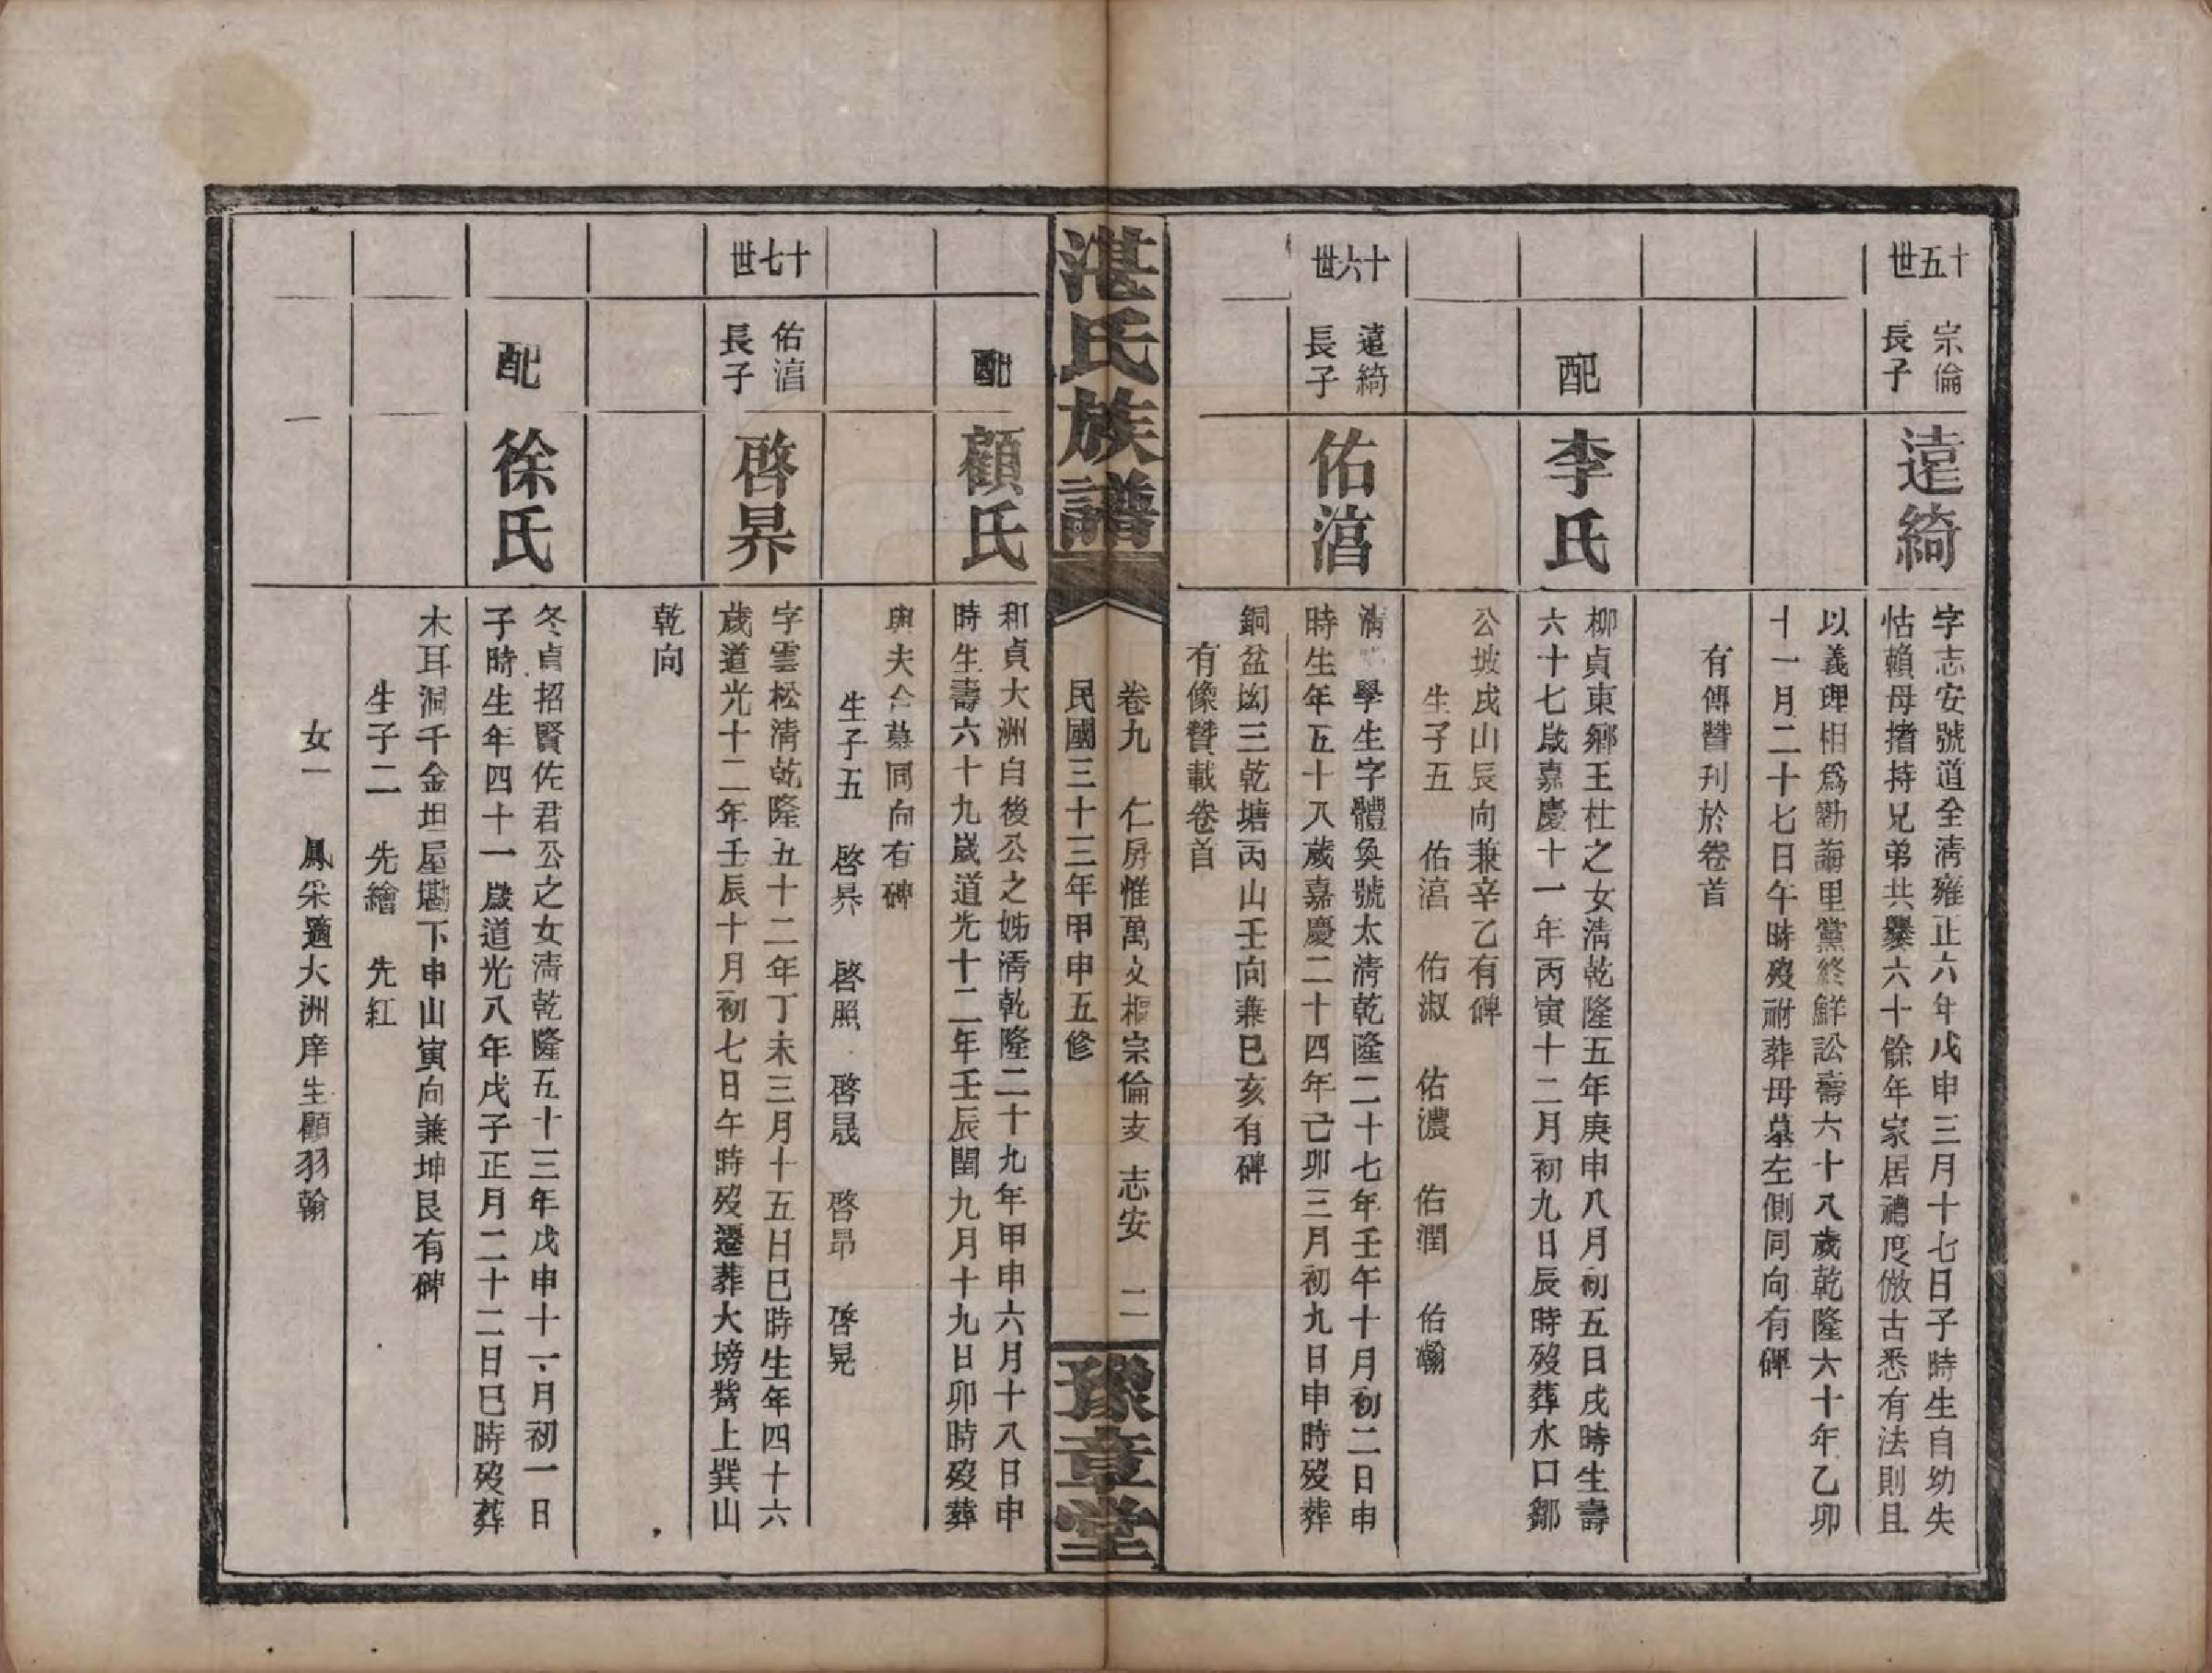 十五世
宗倫
長子
遠綺
字志安號道全清雍正六年戊申三月十七日子時生自幼失
怙賴母撐持兄弟共爨六十餘年家居禮度倣古悉有法則且
以義理相爲勸誨里黨終鮮訟壽六十八歲乾隆六十年乙卯
十一月二十七日午時歿祔葬母墓左側同向有碑
有傳贊刊於卷首
配
李氏
柳貞東鄉王杜之女清乾隆五年庚申八月初五日戌時生壽
六十七歲嘉慶十一年丙寅十二月初九日辰時歿葬水口鄒
公坡戌山辰向兼辛乙有碑
生子五 佑湻 佑淑 佑濃 佑潤 佑瀚
十六世
遠綺
長子
佑湻
清 學生字體奐號太清乾隆二十七年壬午十月初二日申
時生年五十八歲嘉慶二十四年己卯三月初九日申時歿葬
銅盆坳三乾塘丙山壬向兼巳亥有碑
有像贊載卷首
湛氏族譜
卷九 仁房惟萬文樞宗倫支 志安 二
民國三十三年甲申五修
豫章堂
配
顧氏
和貞大洲白後公之姊清乾隆二十九年甲申六月十八日申
時生壽六十九歲道光十二年壬辰閏九月十九日卯時歿葬
與夫合墓同向有碑
生子五 啓昇 啓照 啓晟 啓昂 啓晃
十七世
佑湻
長子
啓昇
字雲松清乾隆五十二年丁未三月十五日巳時生年四十六
歲道光十二年壬辰十月初七日午時歿遷葬大塝背上巽山
乾向
配
徐氏
冬貞招賢佐君公之女清乾隆五十三年戊申十一月初一日
子時生年四十一歲道光八年戊子正月二十二日巳時歿葬
木耳洞千金坦屋墈下申山寅向兼坤艮有碑
生子二 先繪 先紅
女一 鳳采適大洲庠生顧羽翰